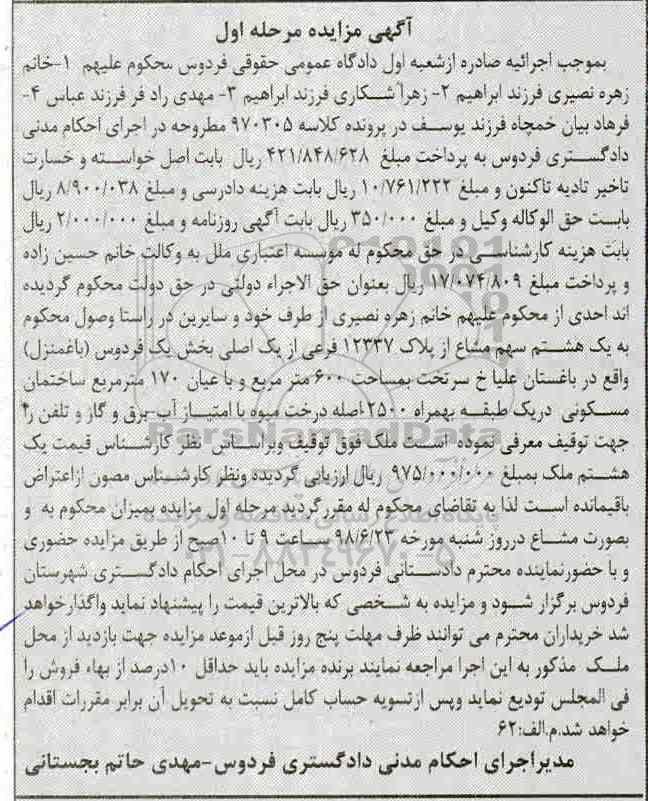 آگهی مزایده مرحله اول
بموجب اجرائیه صادره ازشعبه اول دادگاه عمومی حقوقی فردوس محکوم علیهم ۱-خانم
زهره نصیری فرزند ابراهیم ۲- زهرا شکاری فرزند ابراهیم ۳- مهدی راد فر فرزند عباس ۴-
فرهاد بیان خمچاه فرزند یوسف در پرونده کلاسه ۹۷۰۳۰۵ مطروحه در اجرای احکام مدنی
دادگستری فردوس به پرداخت مبلغ ۴۲۱/۸۴۸/۶۲۸ ریال بابت اصل خواسته و خسارت
تاخیر تادیه تاکنون و مبلغ ۱۰/۷۶۱/۲۲۲ ریال بابت هزینه دادرسی و مبلغ ۸/۹۰۰/۰۳۸ ریال
بابت حق الوکاله وکیل و مبلغ ۳۵۰/۰۰۰ ریال بابت آگهی روزنامه و مبلغ ۲/۰۰۰/۰۰۰ ریال
بابت هزینه کارشناسی در حق محکوم له موسسه اعتباری ملل به وکالت خانم حسین زاده
و پرداخت مبلغ ۱۷/۰۷۴/۸۰۹ ریال بعنوان حق الاجراء دولتی در حق دولت محکوم گردیده
اند احدی از محکوم علیهم خانم زهره نصیری از طرف خود و سایرین در راستا وصول محکوم
به یک هشتم سهم مشاع از پلاک ۱۲۳۳۷ فرعی از یک اصلی بخش یک فردوس (باغمنزل)
واقع در باغستان علیا خ سرتخت بمساحت ۶۰۰ متر مربع و با عیان ۱۷۰ مترمربع ساختمان
مسکونی دریک طبقه بهمراه ۲۵۰۰ اصله درخت میوه با امتیاز آب-برق و گاز و تلفن را
جهت توقیف معرفی نموده است ملک فوق توقیف وبراساس نظر کارشناس قیمت یک
هشتم ملک بمبلغ ۹۷۵/۰۰۰/۰۰۰ ریال ارزیابی گردیده ونظر کارشناس مصون ازاعتراض
باقیمانده است لذا به تقاضای محکوم له مقررگردید مرحله اول مزایده بمیزان محکوم به و
بصورت مشاع درروز شنبه مورخه ۹۸/۶/۲۳ ساعت ۹ تا ۱۰صبح از طریق مزایده حضوری
و با حضورنماینده محترم دادستانی فردوس در محل اجرای احکام دادگستری شهرستان
فردوس برگزار شود و مزایده به شخصی که بالاترین قیمت را پیشنهاد نماید واگذارخواهد
شد خریداران محترم می توانند ظرف مهلت پنج روز قبل ازموعد مزایده جهت بازدید از محل
ملک مذکور به این اجرا مراجعه نمایند برنده مزایده باید حداقل ۱۰درصد از بهاء فروش را
فی المجلس تودیع نماید وپس ازتسویه حساب کامل نسبت به تحویل آن برابر مقررات اقدام
خواهد شد.م.الف:۶۲
مدیراجرای احکام مدنی دادگستری فردوس-مهدی حاتم بجستانی
ParsNamadData
پایگاه اطلاع رسانی مناقصه و مزایده
۰۲۱-۸۸۳۴۹۶۷۰-۵